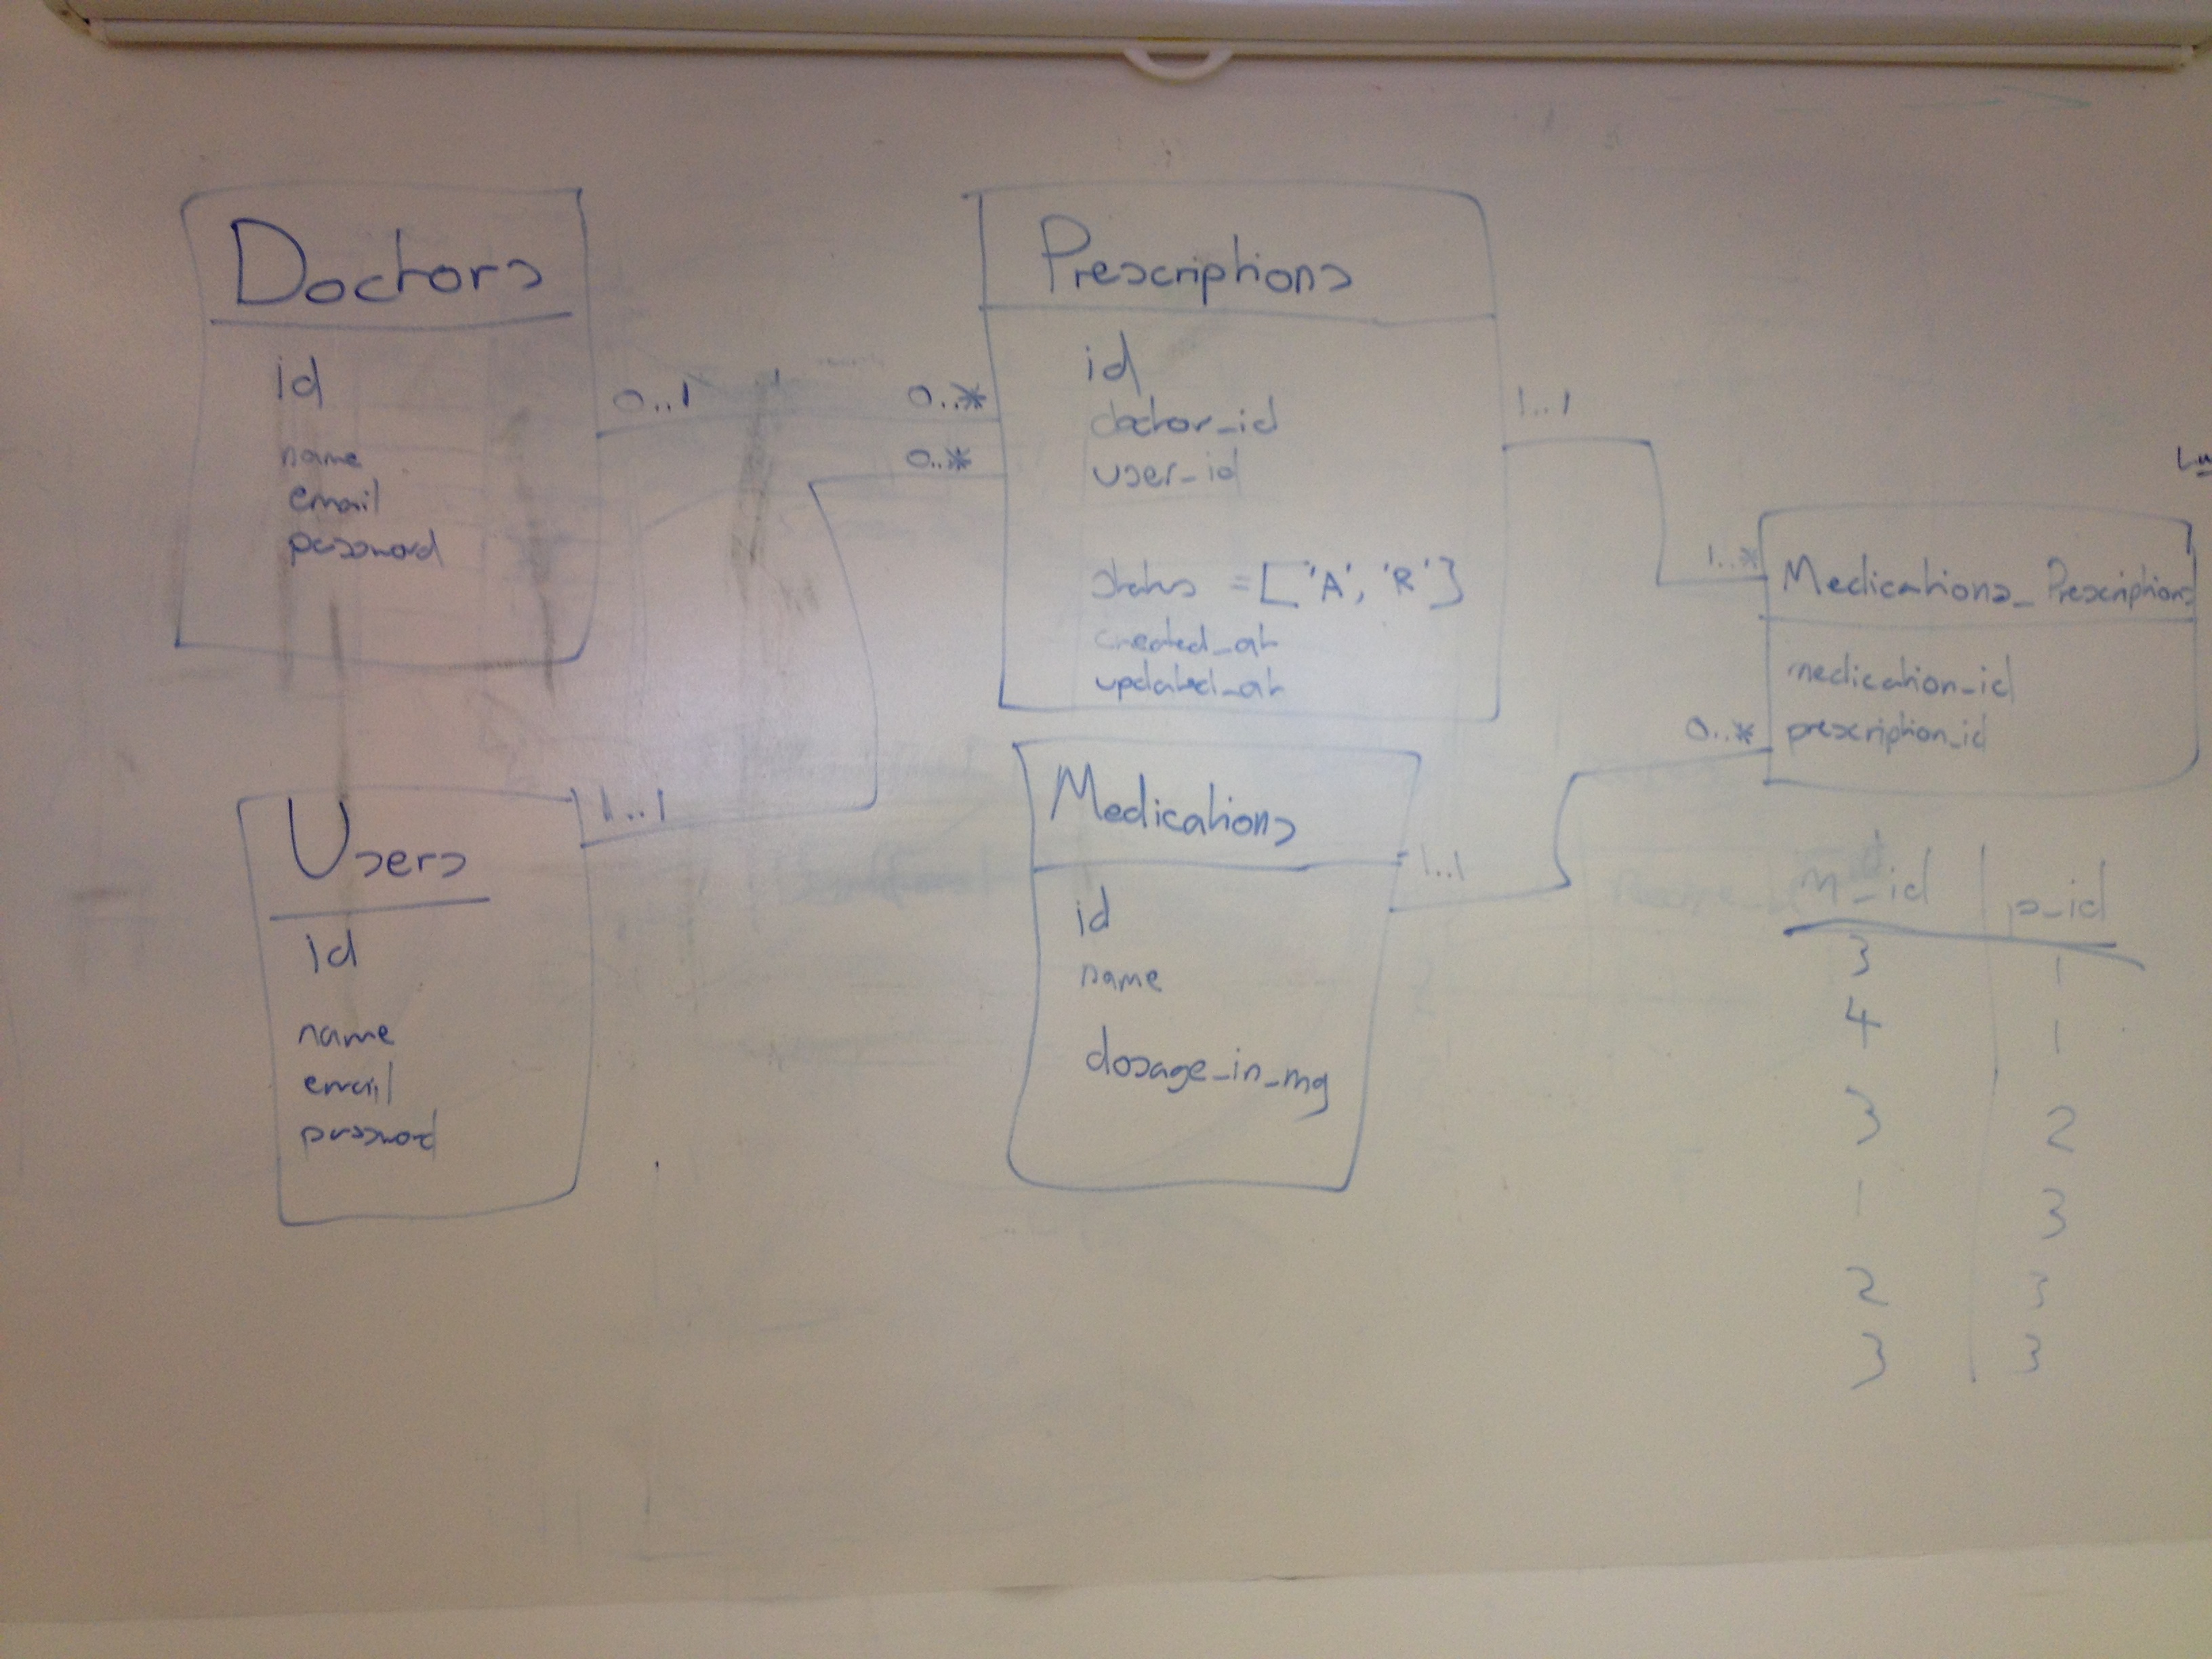 Doctors
id
name
email
password
0..1
0..*
0..*
Prescriptions
id
doctor_id
user_id
status = ['A', 'R']
created_at
updated_at
1..1
1..*
Medications_Prescriptions
medication_id
prescription_id
0..*
Users
id
name
email
password
1..1
Medications
id
name
dosage_in_mg
1..1
m_id p_id
3 1
4 1
3 2
1 3
2 3
3 3